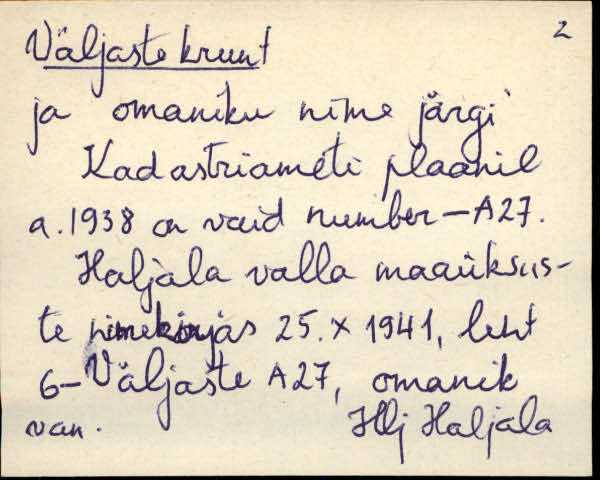 2
Väljaste krunt
ja omaniku nime järgi
Kadastriameti plaanil
a. 1938 on vaid number – A27.
Haljala valla maaüksus-
te nimekirjas 25. X 1941, leht
6 – Väljaste A27, omanik
van. Hlj Haljala